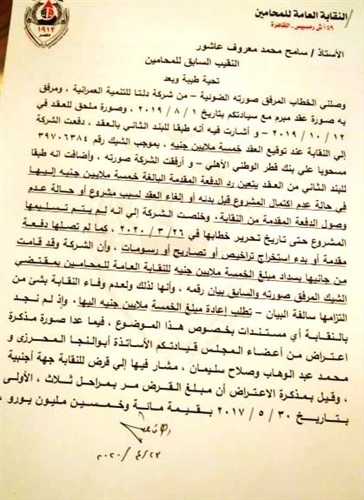 النقابة العامة للمحامين
٤٩ أش رمسيس - القاهرة
١٩١٢
الأستاذ/ سامح محمد معروف عاشور
النقيب السابق للمحامين
تحية طيبة وبعد
وصلني الخطاب المرفق صورته الضوئية - من شركة دلتا للتنمية العمرانية ، ومرفق
به صورة عقد مبرم مع سيادتكم بتاريخ ٢٠١٩/٨/١ ، وصورة ملحق للعقد في
٢٠١٩/١٠/١٢ - و أشارت فيه أنه طبقا للبند الثاني بالعقد ، دفعت الشركة
إلي النقابة عند توقيع العقد خمسة ملايين جنيه ، بموجب الشيك رقم ٣٩٧٠٦٣٨٤
مسحوبا علي بنك قطر الوطني الأهلي - و أرفقت الشركة صورته ، وأضافت انه طبقا
للبند الثاني من العقد يتعين رد الدفعة المقدمة البالغة خمسة ملايين جنيه إليها
في حالة عدم اكتمال المشروع قبل بدنه أو إلغاء العقد لسبب مشروع أو حالة عدم
وصول الدفعة المقدمة من النقابة . وخلصت الشركة إلي انه لم يتم تسليمها
المشروع حتي تاريخ تحرير خطابها في ٢٠٢٠/٣/٢٦ ، كما لم تصلها دفعة
مقدمة أو بدء استخراج تراخيص أو تصاريح أو رسومات ، وأن الشركة وقد قامت
من جانبها بسداد مبلغ الخمسة ملايين جنيه للنقابة العامة للمحامين بمقتضي
الشيك المرفق صورته والسابق بيان رقمه ، وأنها لذلك ولعدم وفاء النقابة بشئ من
التزامها سالفة البيان - تطلب إعادة مبلغ الخمسة ملايين جنيه إليها . وإذ لم نجد
بالنقابة أي مستندات بخصوص هذا الموضوع ، فيما عدا صورة مذكرة
اعتراض من أعضاء المجلس قيادتكم الأساتذة أبوالنجا المحرزي و
محمد عبد الوهاب وصلاح سليمان ، مشار فيها إلي قرض للنقابة جهة أجنبية
، وقيل بمذكرة الاعتراض أن مبلغ القرض مر بمراحل ثلاث ، الأولى
بتاريخ ٢٠١٧/٥/٣٠ بقيمة مائة وخمسين مليون يورو ،
٢٠٢٠/٤/٢٣